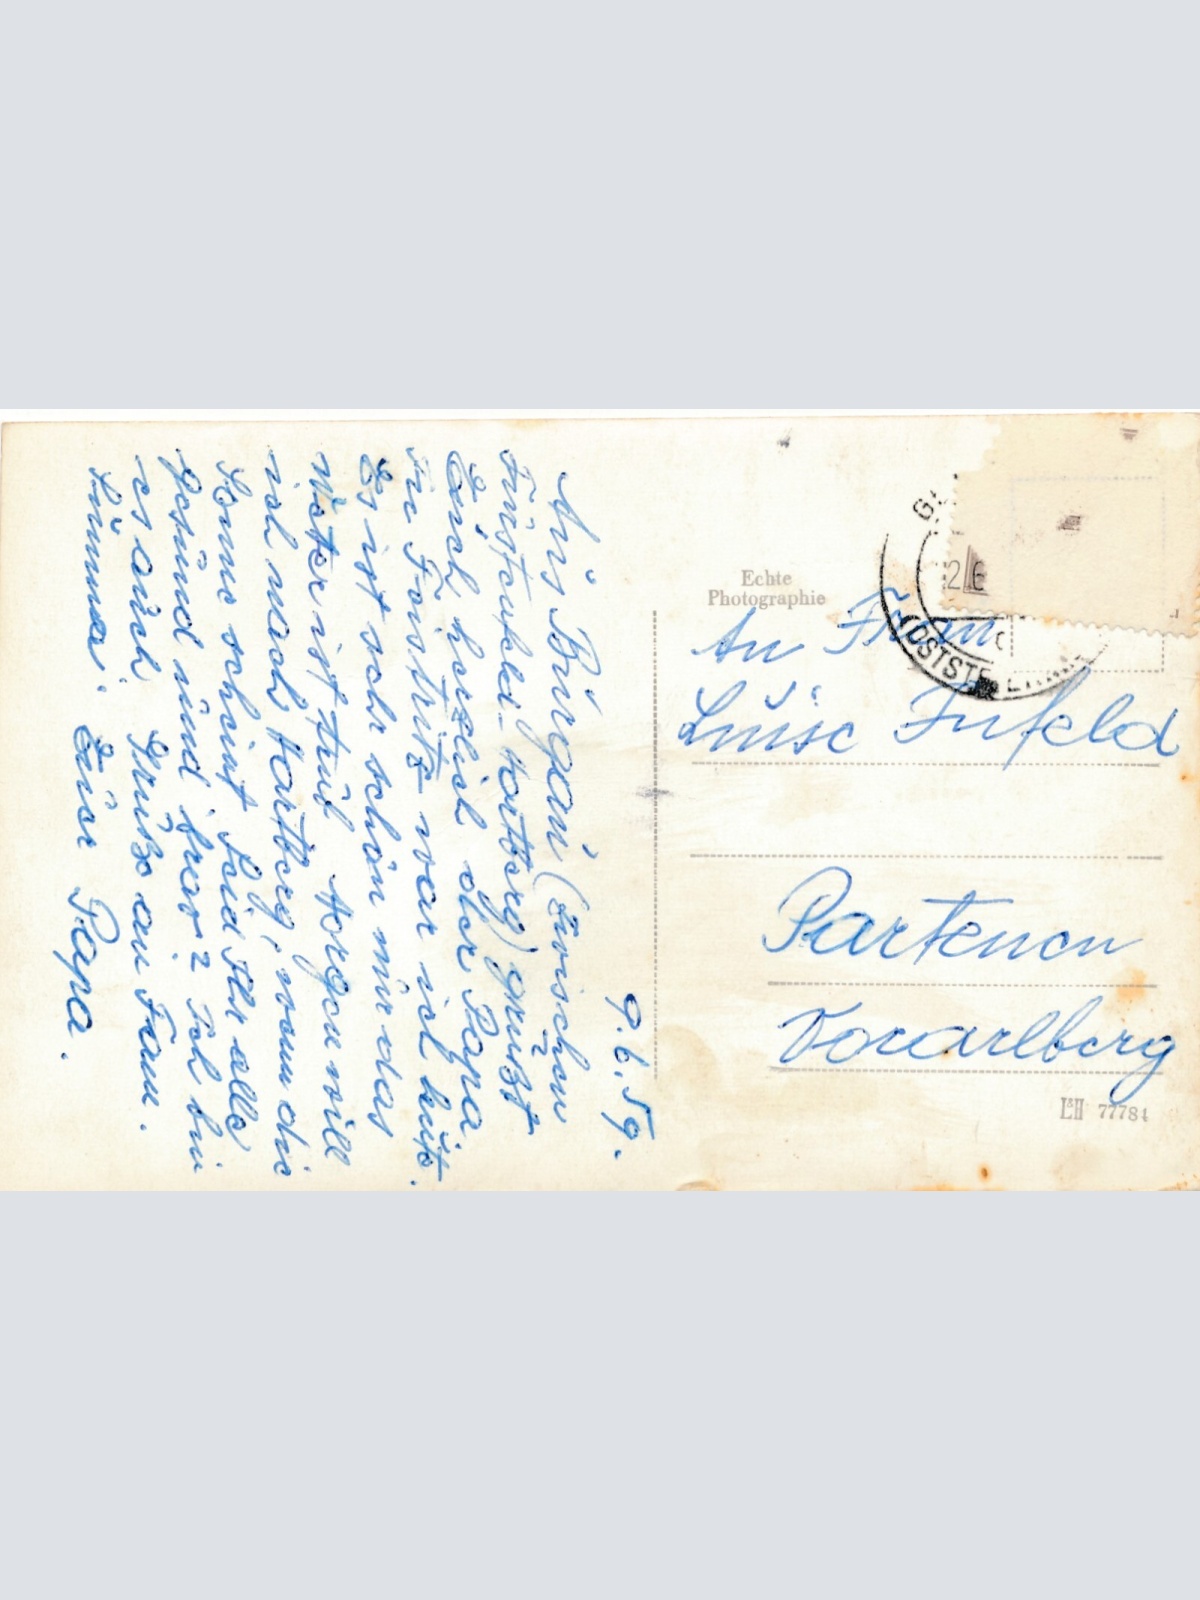 9.6.59.
Aus Burgau (Zwischen
Fürstenfeld-Hartberg) grüßt
Euch herzlich der Papa
In Foistritz war ich heute.
Es ist sehr schön nur das
Weter ist trüb Morgen will
ich nach Hartberg, wenn die
Sonne scheint Seid Ihr alle
Gesund und brav? Ich bin
es auch Grüße an Fam.
Summa. Euer Papa.
Echte
Photographie
An Frau
Luise Infeld
Partenen
Vorarlberg
L&H 77784
POSTST